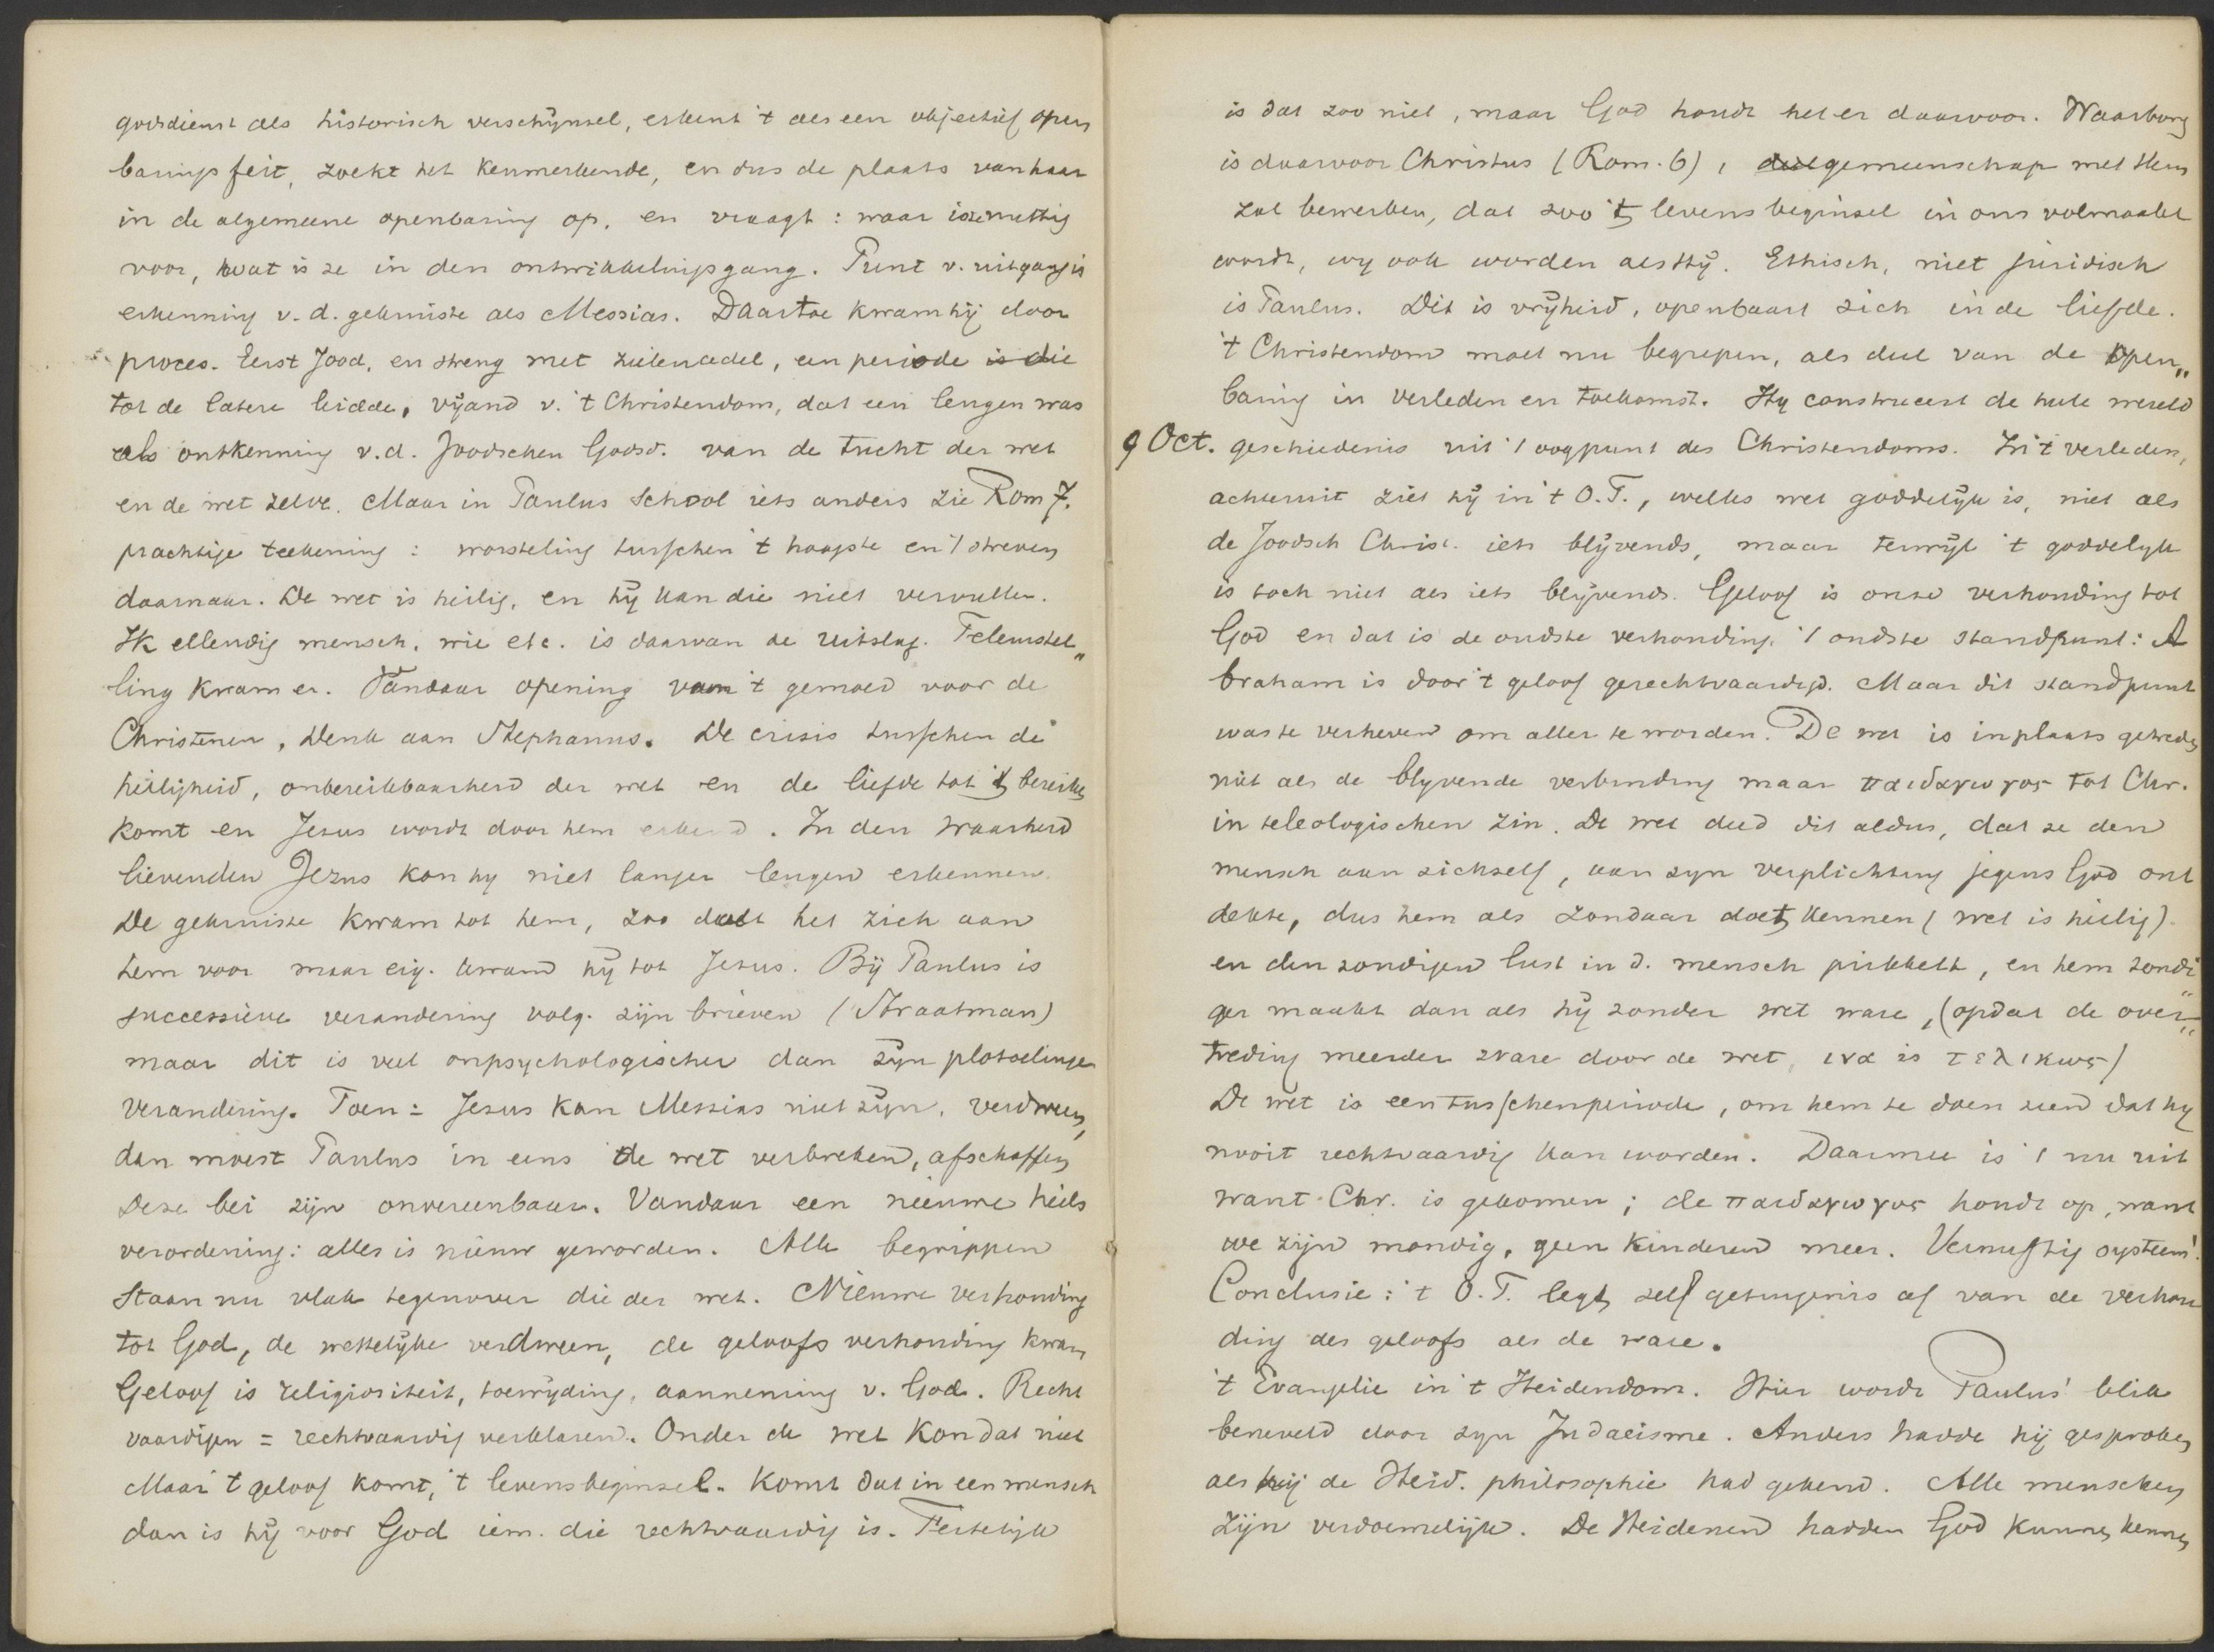 godsdienst als historisch verschijnsel, erkent 't als een objectief open
barings feit, zoekt het kenmerkende, en dus de plaats van haar
in de algemeene openbaring op, en vraagt: waar is ze nuttig
voor, wat is ze in den ontwikkelingsgang. Punt v. uitgang is
erkenning v. d. gekruiste als Messias. Daartoe kwam hij door
proces. Eerst Jood, en streng met zielenadel, een periode is die
tot de latere leidde, vijand v. 't Christendom, dat een leugen was
als ontkenning v.d. Joodschen Godsd. van de tucht der wet
en de wet zelve. Maar in Paulus school iets anders zie Rom 7.
prachtige teekening: worsteling tusschen 't hoogste en 't streven
daarnaar. De wet is heilig, en hij kan die niet vervullen.
Ik ellendig mensch, wie etc. is daarvan de uitslag. Teleurstel„
ling kwam er. Vandaar opening van 't gemoed voor de
Christenen, Denk aan Stephanus. De crisis tusschen de
heiligheid, onbereikbaarheid der wet en de liefde tot 't bereiken
komt en Jezus wordt door hem erkend. In den waarheid
lievenden Jezus kon hy niet langer leugen erkennen.
De gekruiste kwam tot hem, zoo doet het zich aan
hem voor maar eig. kwam hij tot Jezus. Bij Paulus is
successieve verandering volg. zijn brieven (Straatman)
maar dit is veel onpsychologischer dan zijn plotselinge
verandering. Toen: Jezus kan Messias niet zijn, verdween,
dan moest Paulus in eens de wet verbreken, afschaffen
Deze bei zijn onvereenbaar. Vandaar een nieuwe heils
verordening: alles is nieuw geworden. Alle begrippen
staan nu vlak tegenover die der wet. Nieuwe verhouding
tot God, de wettelijke verdween, de geloofs verhouding kwam
Geloof is religiositeit, toewijding, aanneming v. God. Recht
vaardigen = rechtvaardig verklaren. Onder de wet kon dat niet
Maar 't geloof komt, 't levensbeginsel. Komt dat in een mensch
dan is hij voor God iem. die rechtvaardig is. Feitelijk
is dat zoo niet, maar God houdt het er daarvoor. Waarborg
is daarvoor Christus (Rom. 6), gemeenschap met Hem
zal bewerken, dat zoo 't levensbeginsel in ons volmaakt
wordt, wy ook worden als Hij. Ethisch, niet juridisch
is Paulus. Dit is vrijheid, openbaart zich in de liefde.
't Christendom moet nu begrepen, als deel van de open„
baring in verleden en toekomst. Hy construeert de heele wereld
9 Oct. geschiedenis uit 't oogpunt des Christendoms. In 't verleden,
achteruit ziet hij in 't O.T., welks wet goddelijk is, niet als
de Joodsch Christ. iets blijvends, maar terwijl 't goddelijk
is toch niet als iets blijvends. Geloof is onze verhouding tot
God en dat is de oudste verhouding, 't oudste standpunt: A
braham is door 't geloof gerechtvaardigd. Maar dit standpunt
was te verheven om aller te worden. De wet is in plaats getreden
niet als de blyvende verbinding maar παιδαγωγος tot Chr.
in teleologischen zin. De wet deed dit aldus, dat ze den
mensch aan zichzelf, aan zyn verplichting jegens God ont
dekte, dus hem als zondaar doet kennen (wet is heilig).
en den zondigen lust in d. mensch prikkelt, en hem zondi
ger maakt dan als hij zonder wet ware, (opdat de over„
treding meerder ware door de wet, ινα is τελικως)
De wet is een tusschenperiode, om hem te doen zien dat hy
nooit rechtvaardig kan worden. Daarmee is 't nu uit
want Chr. is gekomen; de παιδαγωγος houdt op, want
we zijn mondig, geen kinderen meer. Vernuftig systeem!
Conclusie: 't O.T. legt zelf getuigenis af van de verhou
ding des geloofs als de ware.
't Evangelie in 't Heidendom. Hier wordt Paulus' blik
beneveld door zyn Judaeisme. Anders hadde hij gesproken
als hij de Heid. philosophie had gekend. Alle menschen
zijn verdoemelijk. De Heidenen hadden God kunnen kennen